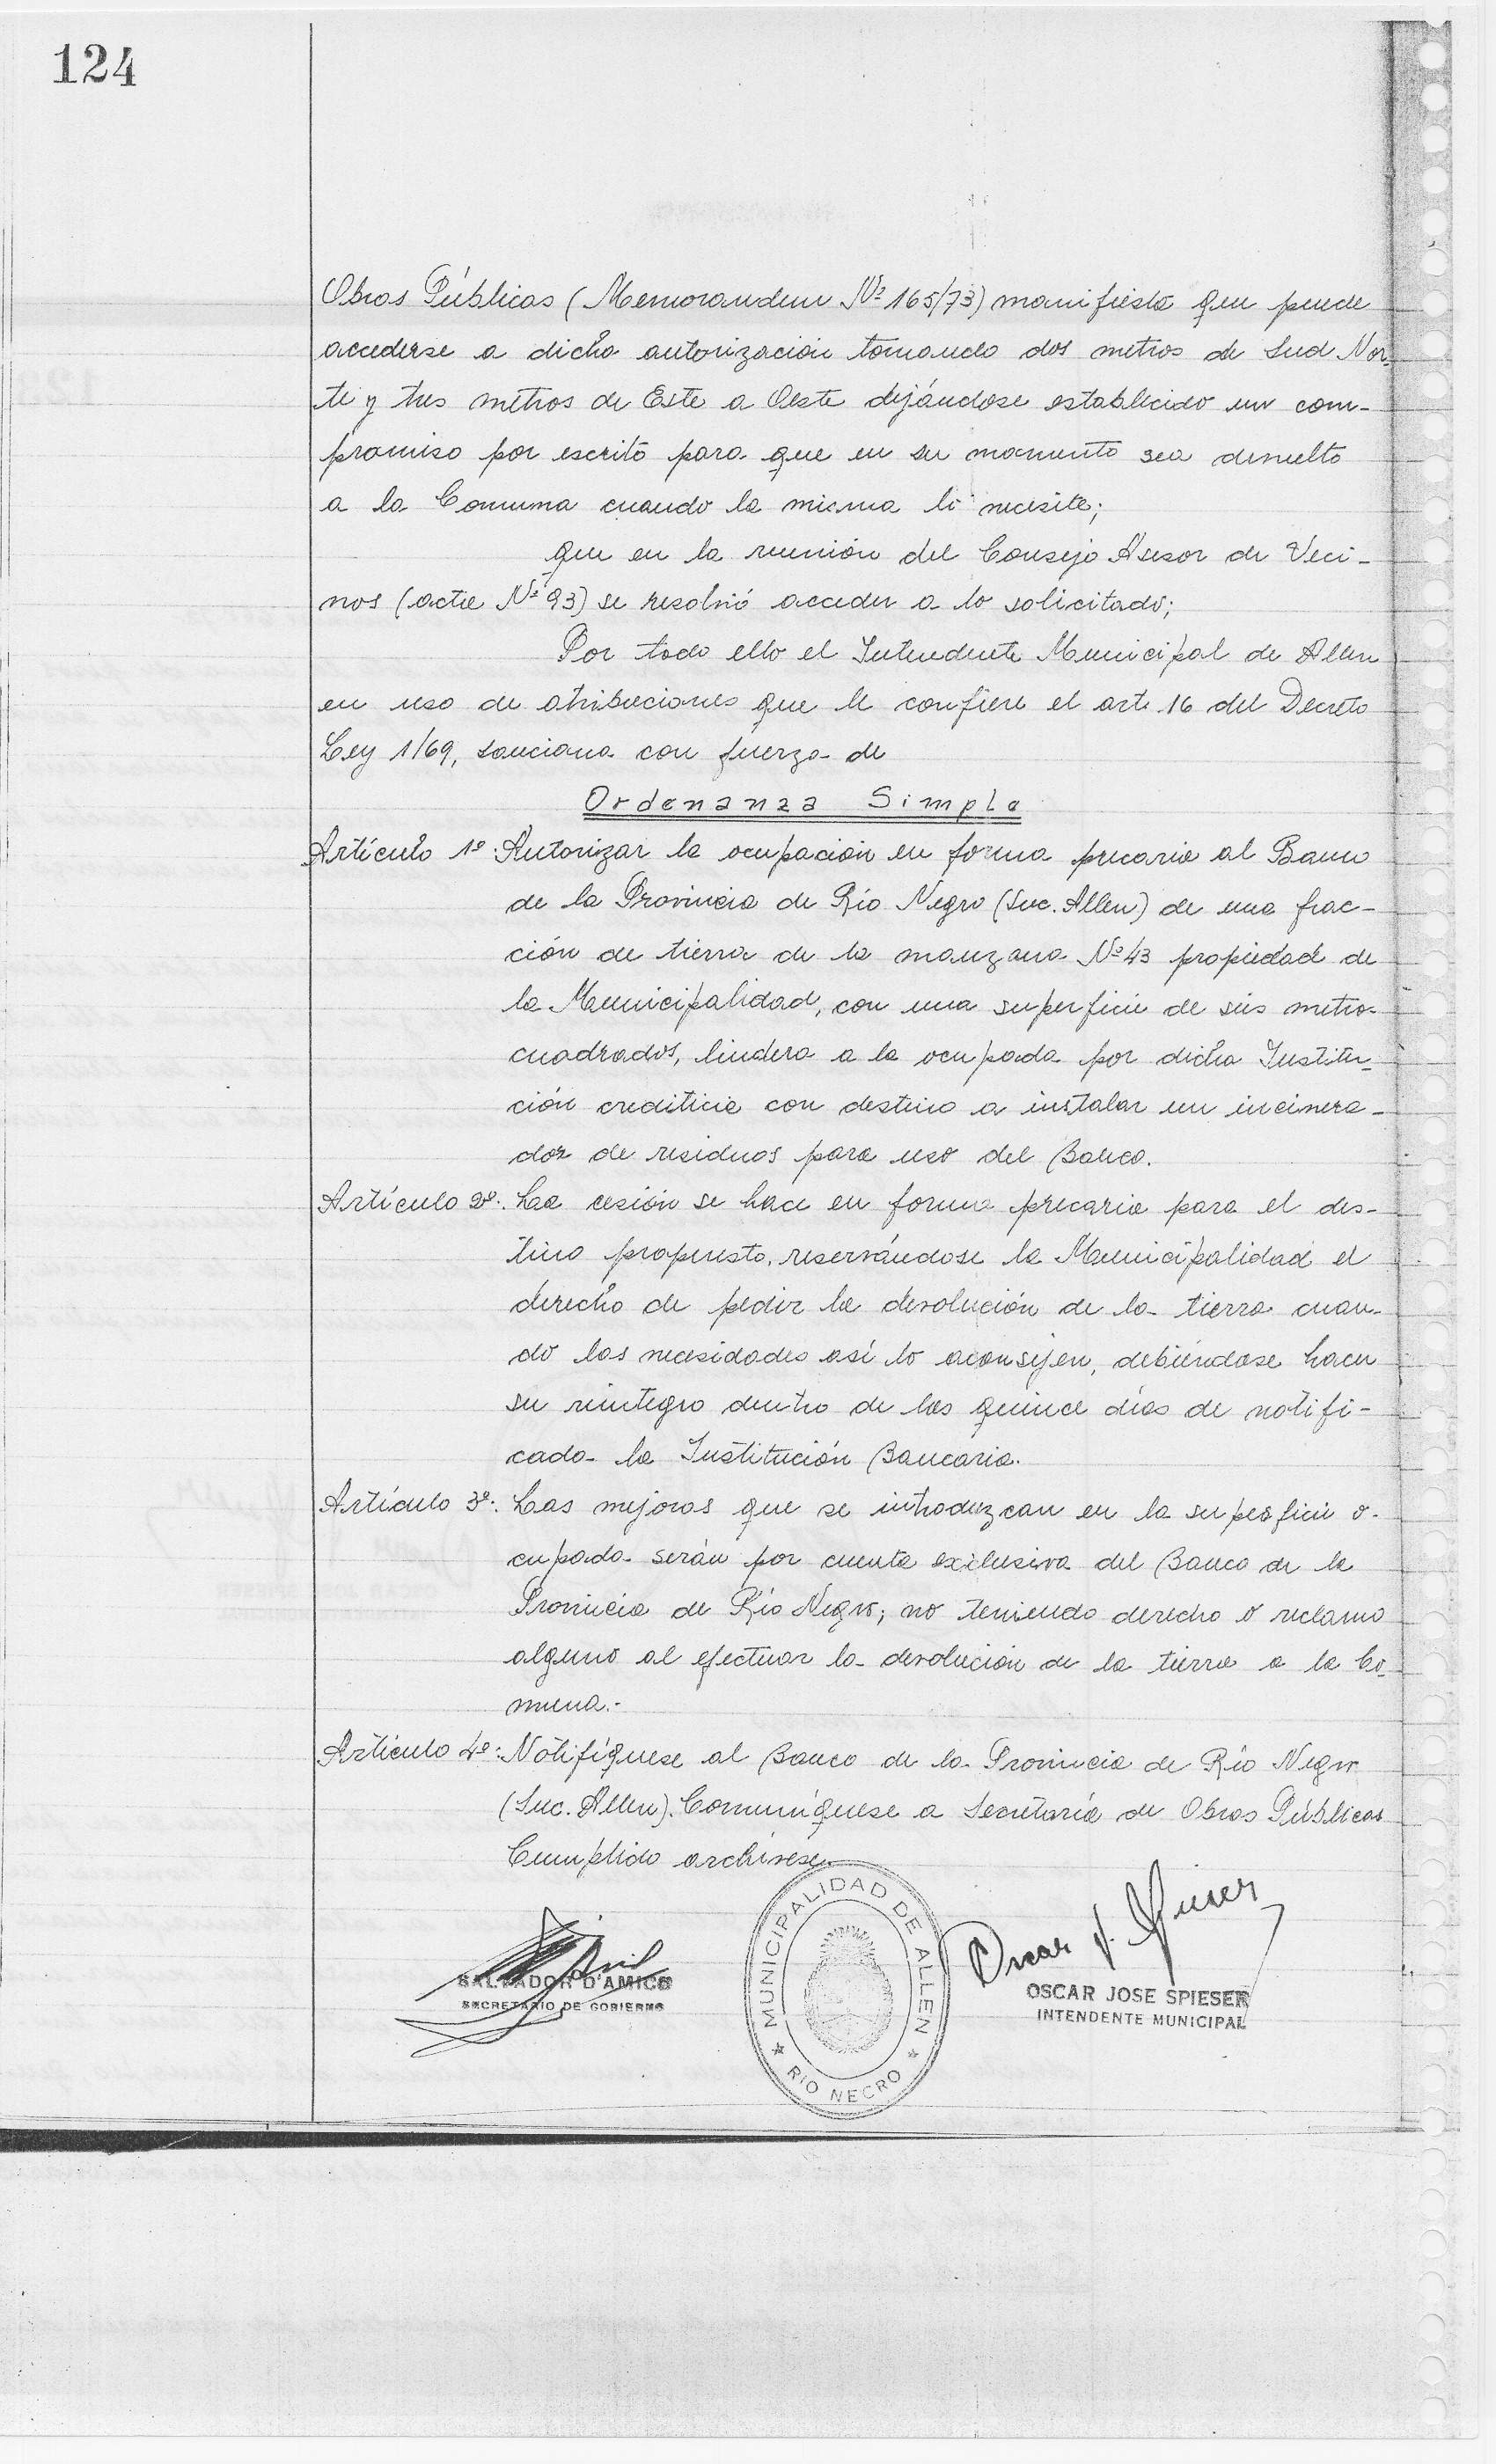 124
Obras Públicas (Memorandum Nº 165/73) manifiesta que puede
accederse a dicha autorización tomando dos metros de Sud Nor-
te y tres metros de Este a Oeste dejándose establecido un com-
promiso por escrito para que en su momento sea devuelto
a la Comuna cuando la misma lo necesite;
que en la reunión del Consejo Asesor de Veci-
nos (acta Nº 93) se resolvió acceder a lo solicitado;
Por todo ello el Intendente Municipal de Allen
en uso de atribuciones que le confiere el art. 16 del Decreto
Ley 1/69, sanciona con fuerza de
Ordenanza Simple
Artículo 1º: Autorizar la ocupación en forma precaria al Banco
de la Provincia de Río Negro (Suc. Allen) de una frac-
ción de tierra de la manzana Nº 43 propiedad de
la Municipalidad, con una superficie de seis metros
cuadrados, lindera a la ocupada por dicha Institu-
ción crediticia con destino a instalar un incinera-
dor de residuos para uso del Banco.
Artículo 2º: La cesión se hace en forma precaria para el des-
tino propuesto, reservándose la Municipalidad el
derecho de pedir la devolución de la tierra cuan-
do las necesidades así lo aconsejen, debiéndose hacer
su reintegro dentro de los quince días de notifi-
cada la Institución Bancaria.
Artículo 3º: Las mejoras que se introduzcan en la superficie o-
cupada serán por cuenta exclusiva del Banco de la
Provincia de Río Negro; no teniendo derecho o reclamo
alguno al efectuar la devolución de la tierra a la Co-
muna.-
Artículo 4º: Notifíquese al Banco de la Provincia de Río Negro
(Suc. Allen). Comuníquese a Secretaría de Obras Públicas
Cumplido archívese.
MUNICIPALIDAD DE ALLEN
RIO NEGRO
SALVADOR D'AMICO
SECRETARIO DE GOBIERNO
Oscar J. Spieser
OSCAR JOSE SPIESER
INTENDENTE MUNICIPAL